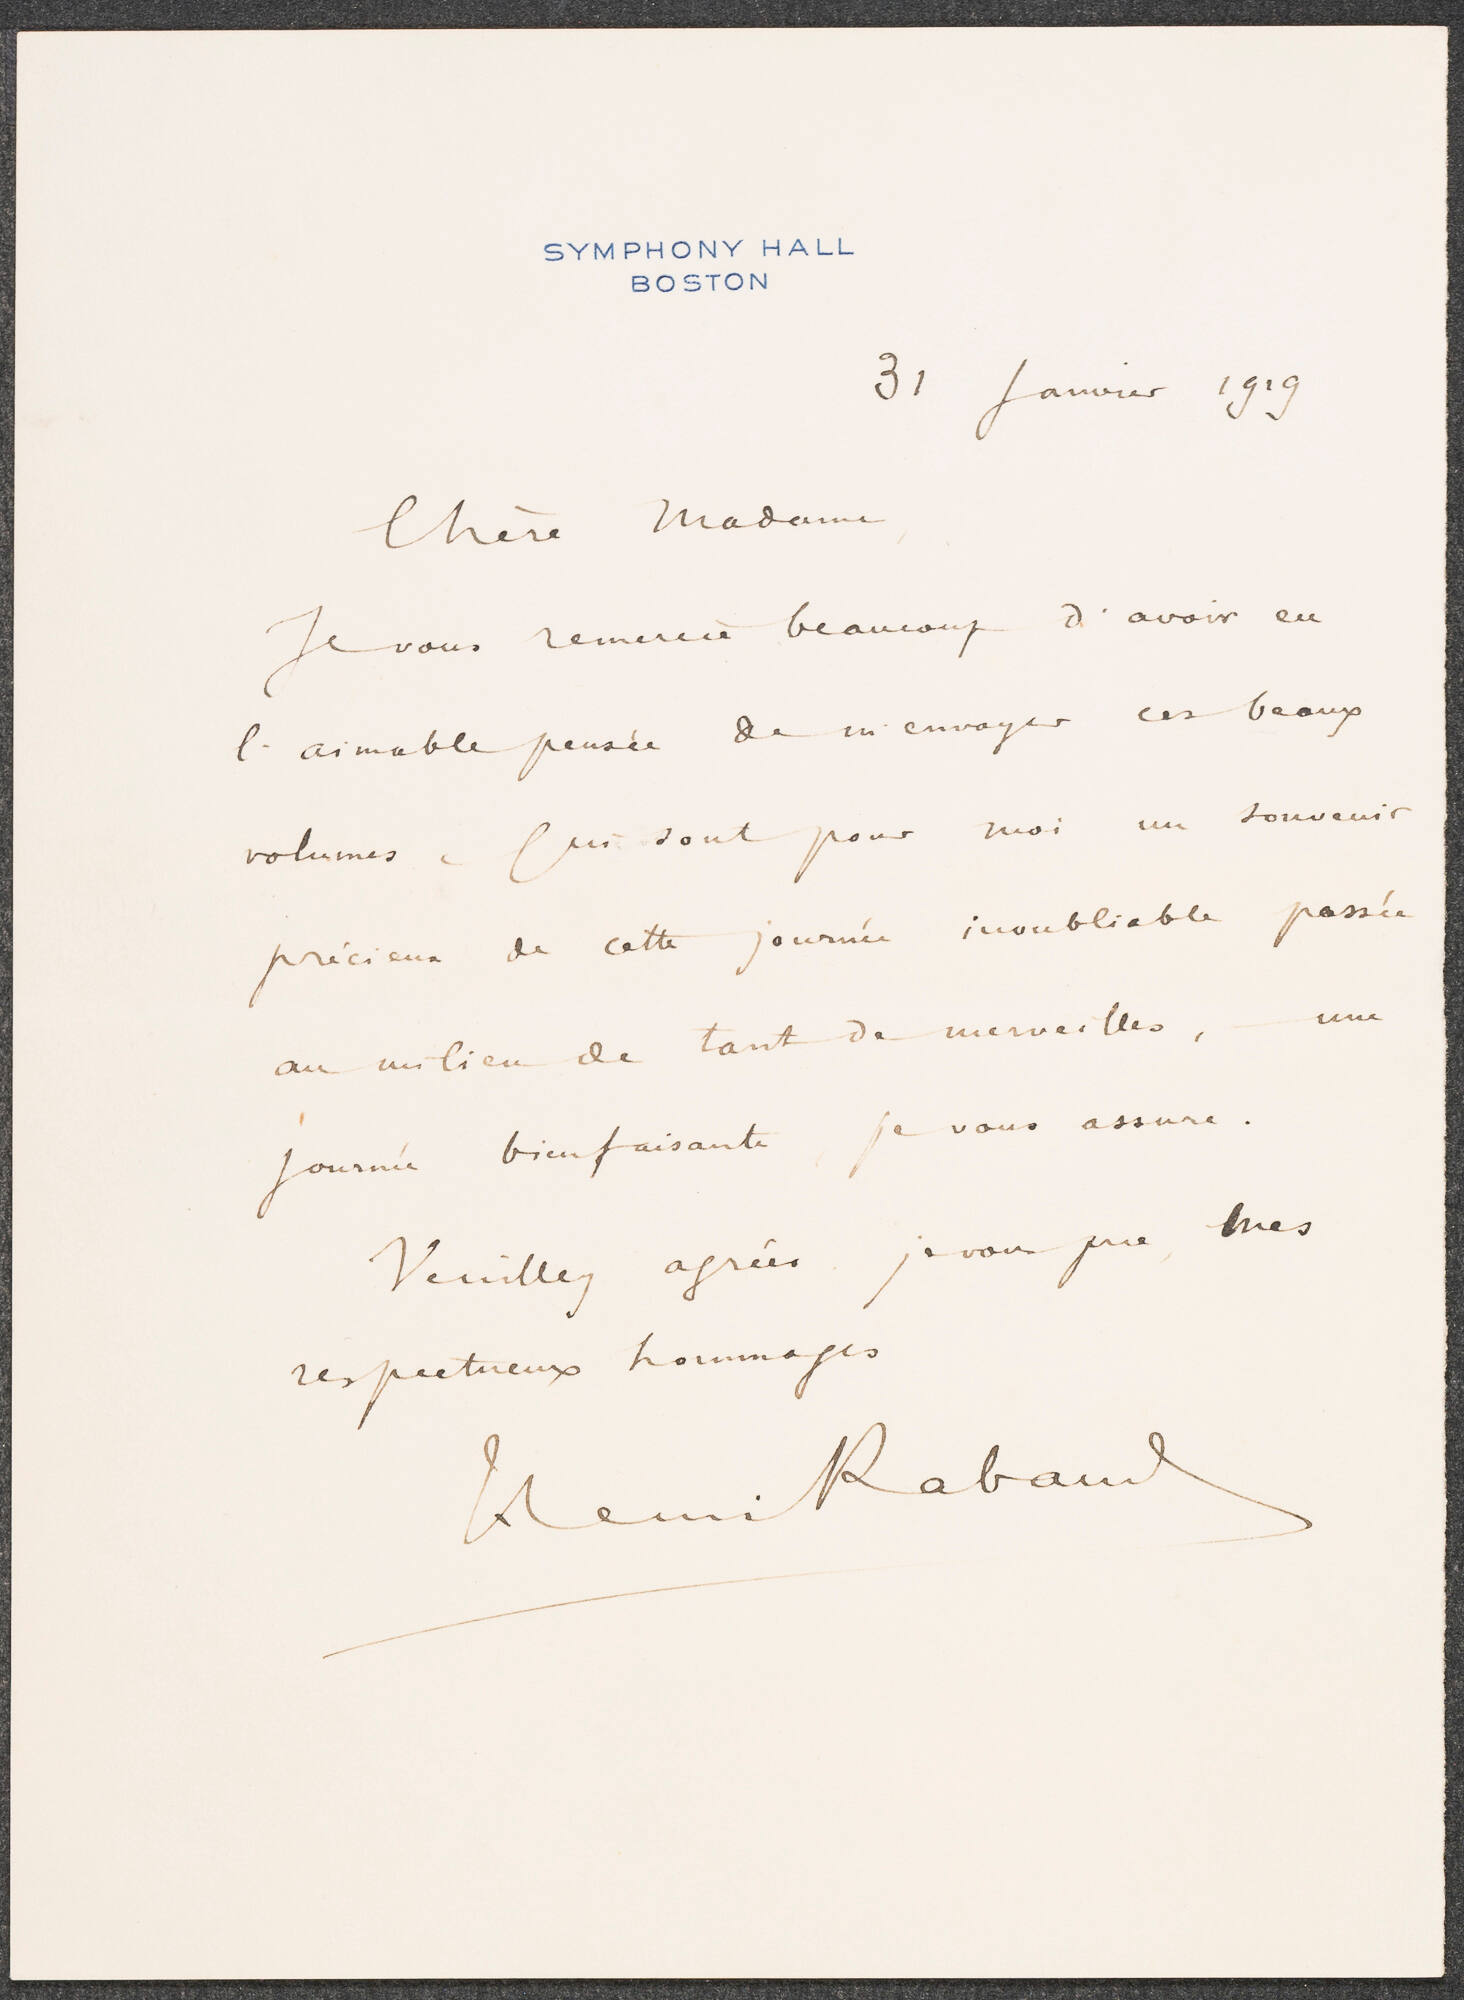 SYMPHONY HALL
BOSTON
31 Janvier 1919
Chère Madame,
Je vous remercie beaucoup d'avoir eu
l'aimable pensée de m'envoyer ces beaux
volumes, qui sont pour moi un souvenir
précieux de cette journée inoubliable passée
au milieu de tant de merveilles, — une
journée bienfaisante, je vous assure.
Veuillez agréer, je vous prie, mes
respectueux hommages
Henri Rabaud